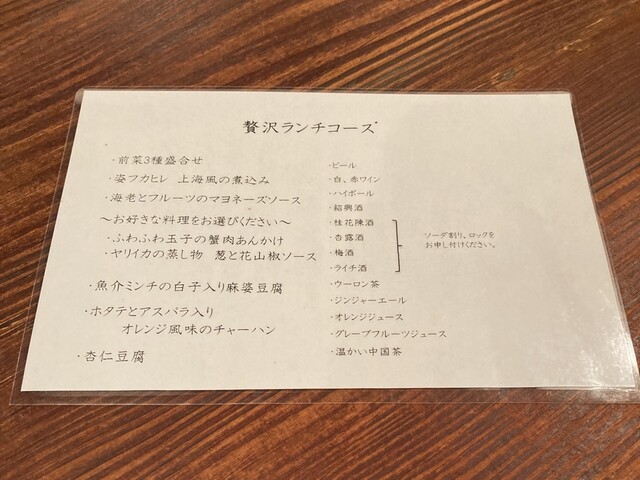 贅沢ランチコース
・前菜3種盛合せ
・姿フカヒレ 上海風の煮込み
・海老とフルーツのマヨネーズソース
〜お好きな料理をお選びください〜
・ふわふわ玉子の蟹肉あんかけ
・ヤリイカの蒸し物 葱と花山椒ソース
・魚介ミンチの白子入り麻婆豆腐
・ホタテとアスパラ入り
オレンジ風味のチャーハン
・杏仁豆腐
・ビール
・白、赤ワイン
・ハイボール
・紹興酒
・桂花陳酒
・杏露酒
・梅酒
・ライチ酒
ソーダ割り、ロックを
お申し付けください。
・ウーロン茶
・ジンジャーエール
・オレンジジュース
・グレープフルーツジュース
・温かい中国茶